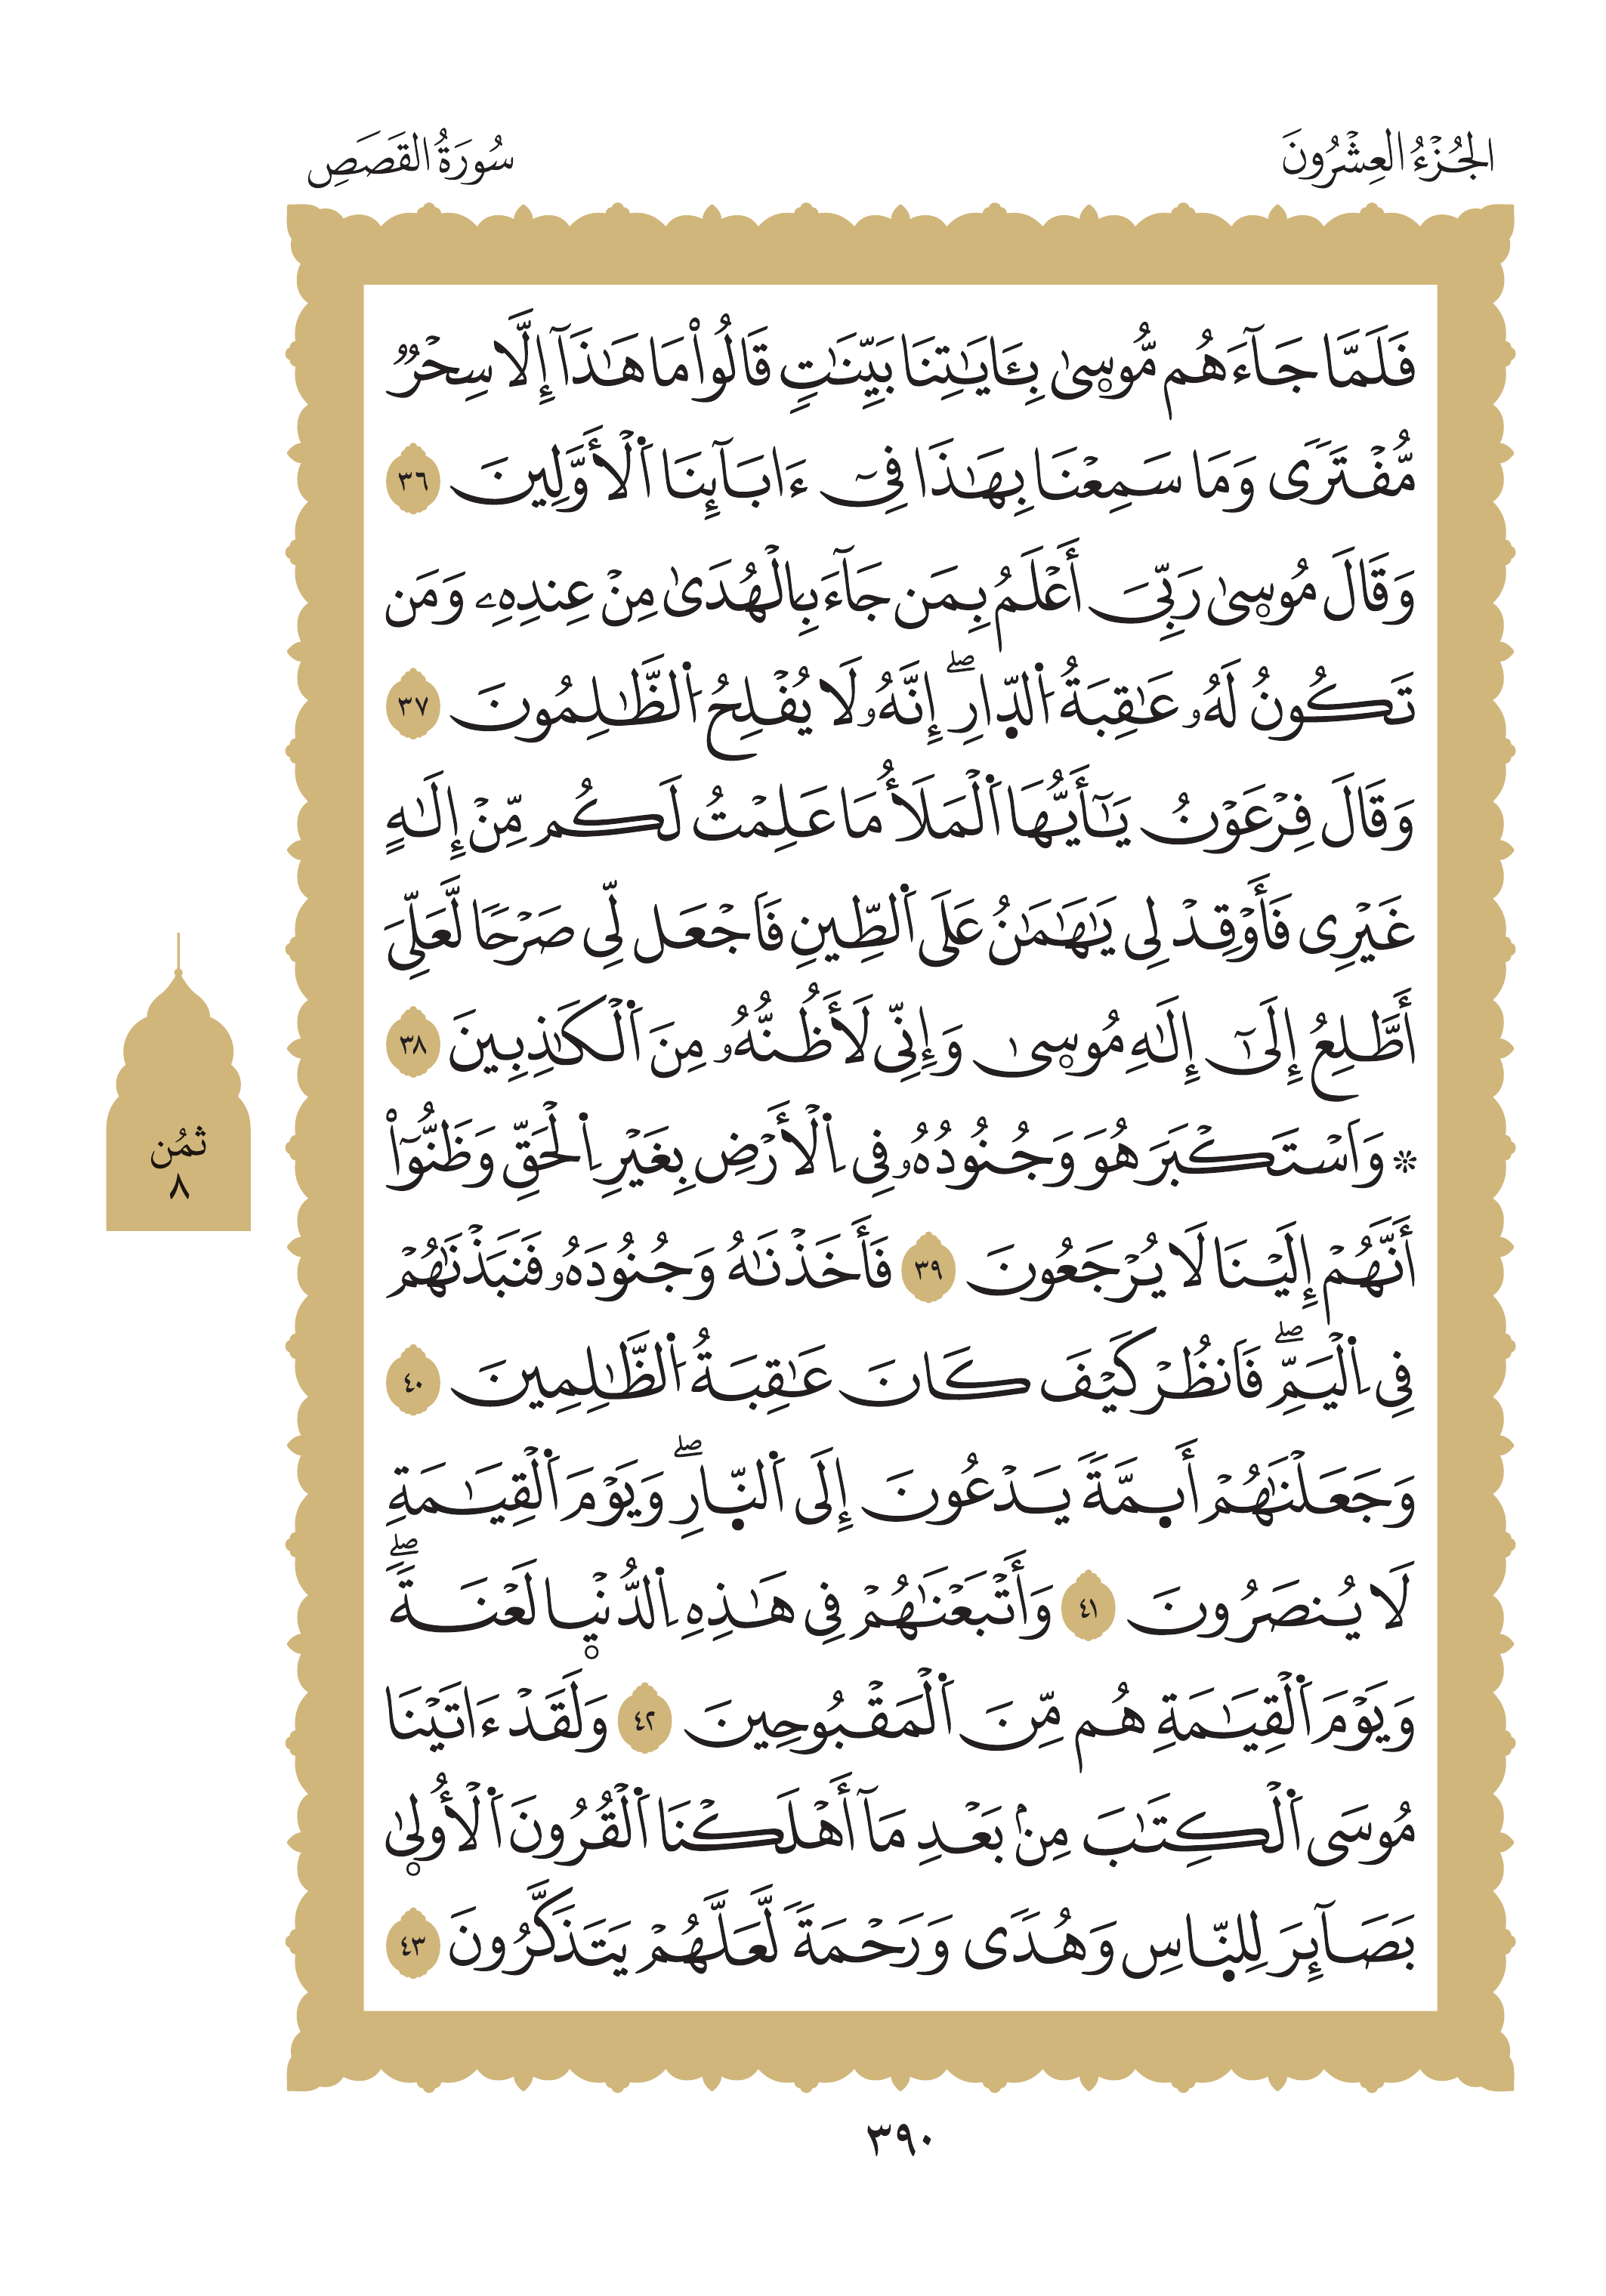 الجُزْءُ العِشْرُونَ
سُورَةُ القَصَصِ
فَلَمَّا جَآءَهُم مُّوسٜىٰ بِـَٔايَٰتِنَا بَيِّنَٰتٖ قَالُواْ مَا هَٰذَآ إِلَّا سِحۡرٞ
مُّفۡتَرٗى وَمَا سَمِعۡنَا بِهَٰذَا فِيٓ ءَابَآئِنَا اَ۬لۡأَوَّلِينَ ٣٦
وَقَالَ مُوسٜىٰ رَبِّيَ أَعۡلَمُ بِمَن جَآءَ بِالۡهُدَىٰ مِنۡ عِندِهِۦ وَمَن
تَكُونُ لَهُۥ عَٰقِبَةُ اُ۬لدّ۪ارِۖ إِنَّهُۥ لَا يُفۡلِحُ اُ۬لظَّٰلِمُونَ ٣٧
وَقَالَ فِرۡعَوۡنُ يَٰٓأَيُّهَا اَ۬لۡمَلَأُ مَا عَلِمۡتُ لَكُم مِّنۡ إِلَٰهٍ
غَيۡرِي فَأَوۡقِدۡ لِي يَٰهَٰمَٰنُ عَلَى اَ۬لطِّينِ فَاجۡعَل لِّي صَرۡحٗا لَّعَلِّيَ
أَطَّلِعُ إِلَىٰٓ إِلَٰهِ مُوسٜىٰ وَإِنِّي لَأَظُنُّهُۥ مِنَ اَ۬لۡكَٰذِبِينَ ٣٨
۞ وَاَسۡتَكۡبَرَ هُوَ وَجُنُودُهُۥ فِي اِ۬لۡأَرۡضِ بِغَيۡرِ اِ۬لۡحَقِّ وَظَنُّوٓاْ
أَنَّهُمۡ إِلَيۡنَا لَا يُرۡجَعُونَ ٣٩ فَأَخَذۡنَٰهُ وَجُنُودَهُۥ فَنَبَذۡنَٰهُمۡ
فِي اِ۬لۡيَمِّۖ فَاَنظُرۡ كَيۡفَ كَانَ عَٰقِبَةُ اُ۬لظَّٰلِمِينَ ٤٠
وَجَعَلۡنَٰهُمۡ أَى۪مَّةٗ يَدۡعُونَ إِلَى اَ۬لنّ۪ارِۖ وَيَوۡمَ اَ۬لۡقِيَٰمَةِ
لَا يُنصَرُونَ ٤١ وَأَتۡبَعۡنَٰهُمۡ فِي هَٰذِهِ اِ۬لدُّنۡيٜا لَعۡنَةٗۖ
وَيَوۡمَ اَ۬لۡقِيَٰمَةِ هُم مِّنَ اَ۬لۡمَقۡبُوحِينَ ٤٢ وَلَقَدۡ ءَاتَيۡنَا
مُوسَى اَ۬لۡكِتَٰبَ مِنۢ بَعۡدِ مَآ أَهۡلَكۡنَا اَ۬لۡقُرُونَ اَ۬لۡأُولٜىٰ
بَصَآئِرَ لِلنّ۪اسِ وَهُدٗى وَرَحۡمَةٗ لَّعَلَّهُمۡ يَتَذَكَّرُونَ ٤٣
ثُمُن
٨
٣٩٠